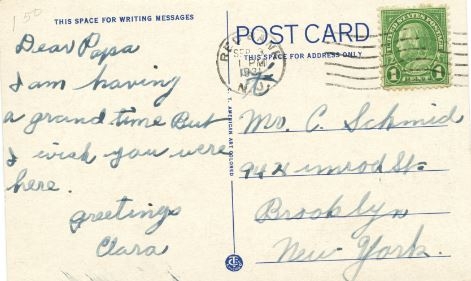 1 50
THIS SPACE FOR WRITING MESSAGES
Dear Papa
I am having
a grand time But
I wish you were
here.
Greetings
Clara
POST CARD
THIS SPACE FOR ADDRESS ONLY
RED BANK
SEP
1 PM
1931
N.J.
UNITED STATES POSTAGE
1 CENT 1
C. T. AMERICAN ART COLORED
Mr. C. Schmid
944 imrod St.
Brooklyn
New York.